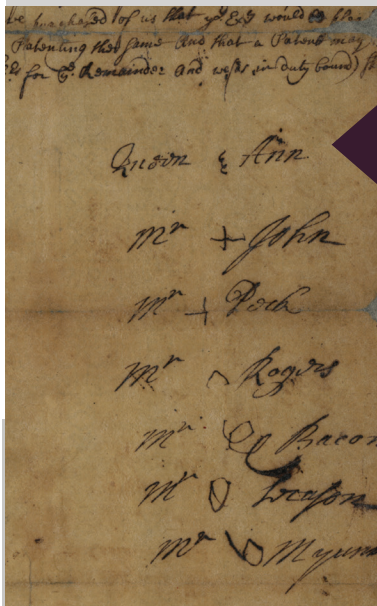 be purchased of us that yᵉ Exʸ would be plea
Patenting the same And that a Patent may
for yᵉ Remainder and wᵉ as in duty bound
Queen & Ann
Mʳ + John
Mʳ + Peck
Mʳ Rogers
Mʳ Bacon
Mʳ
Mʳ